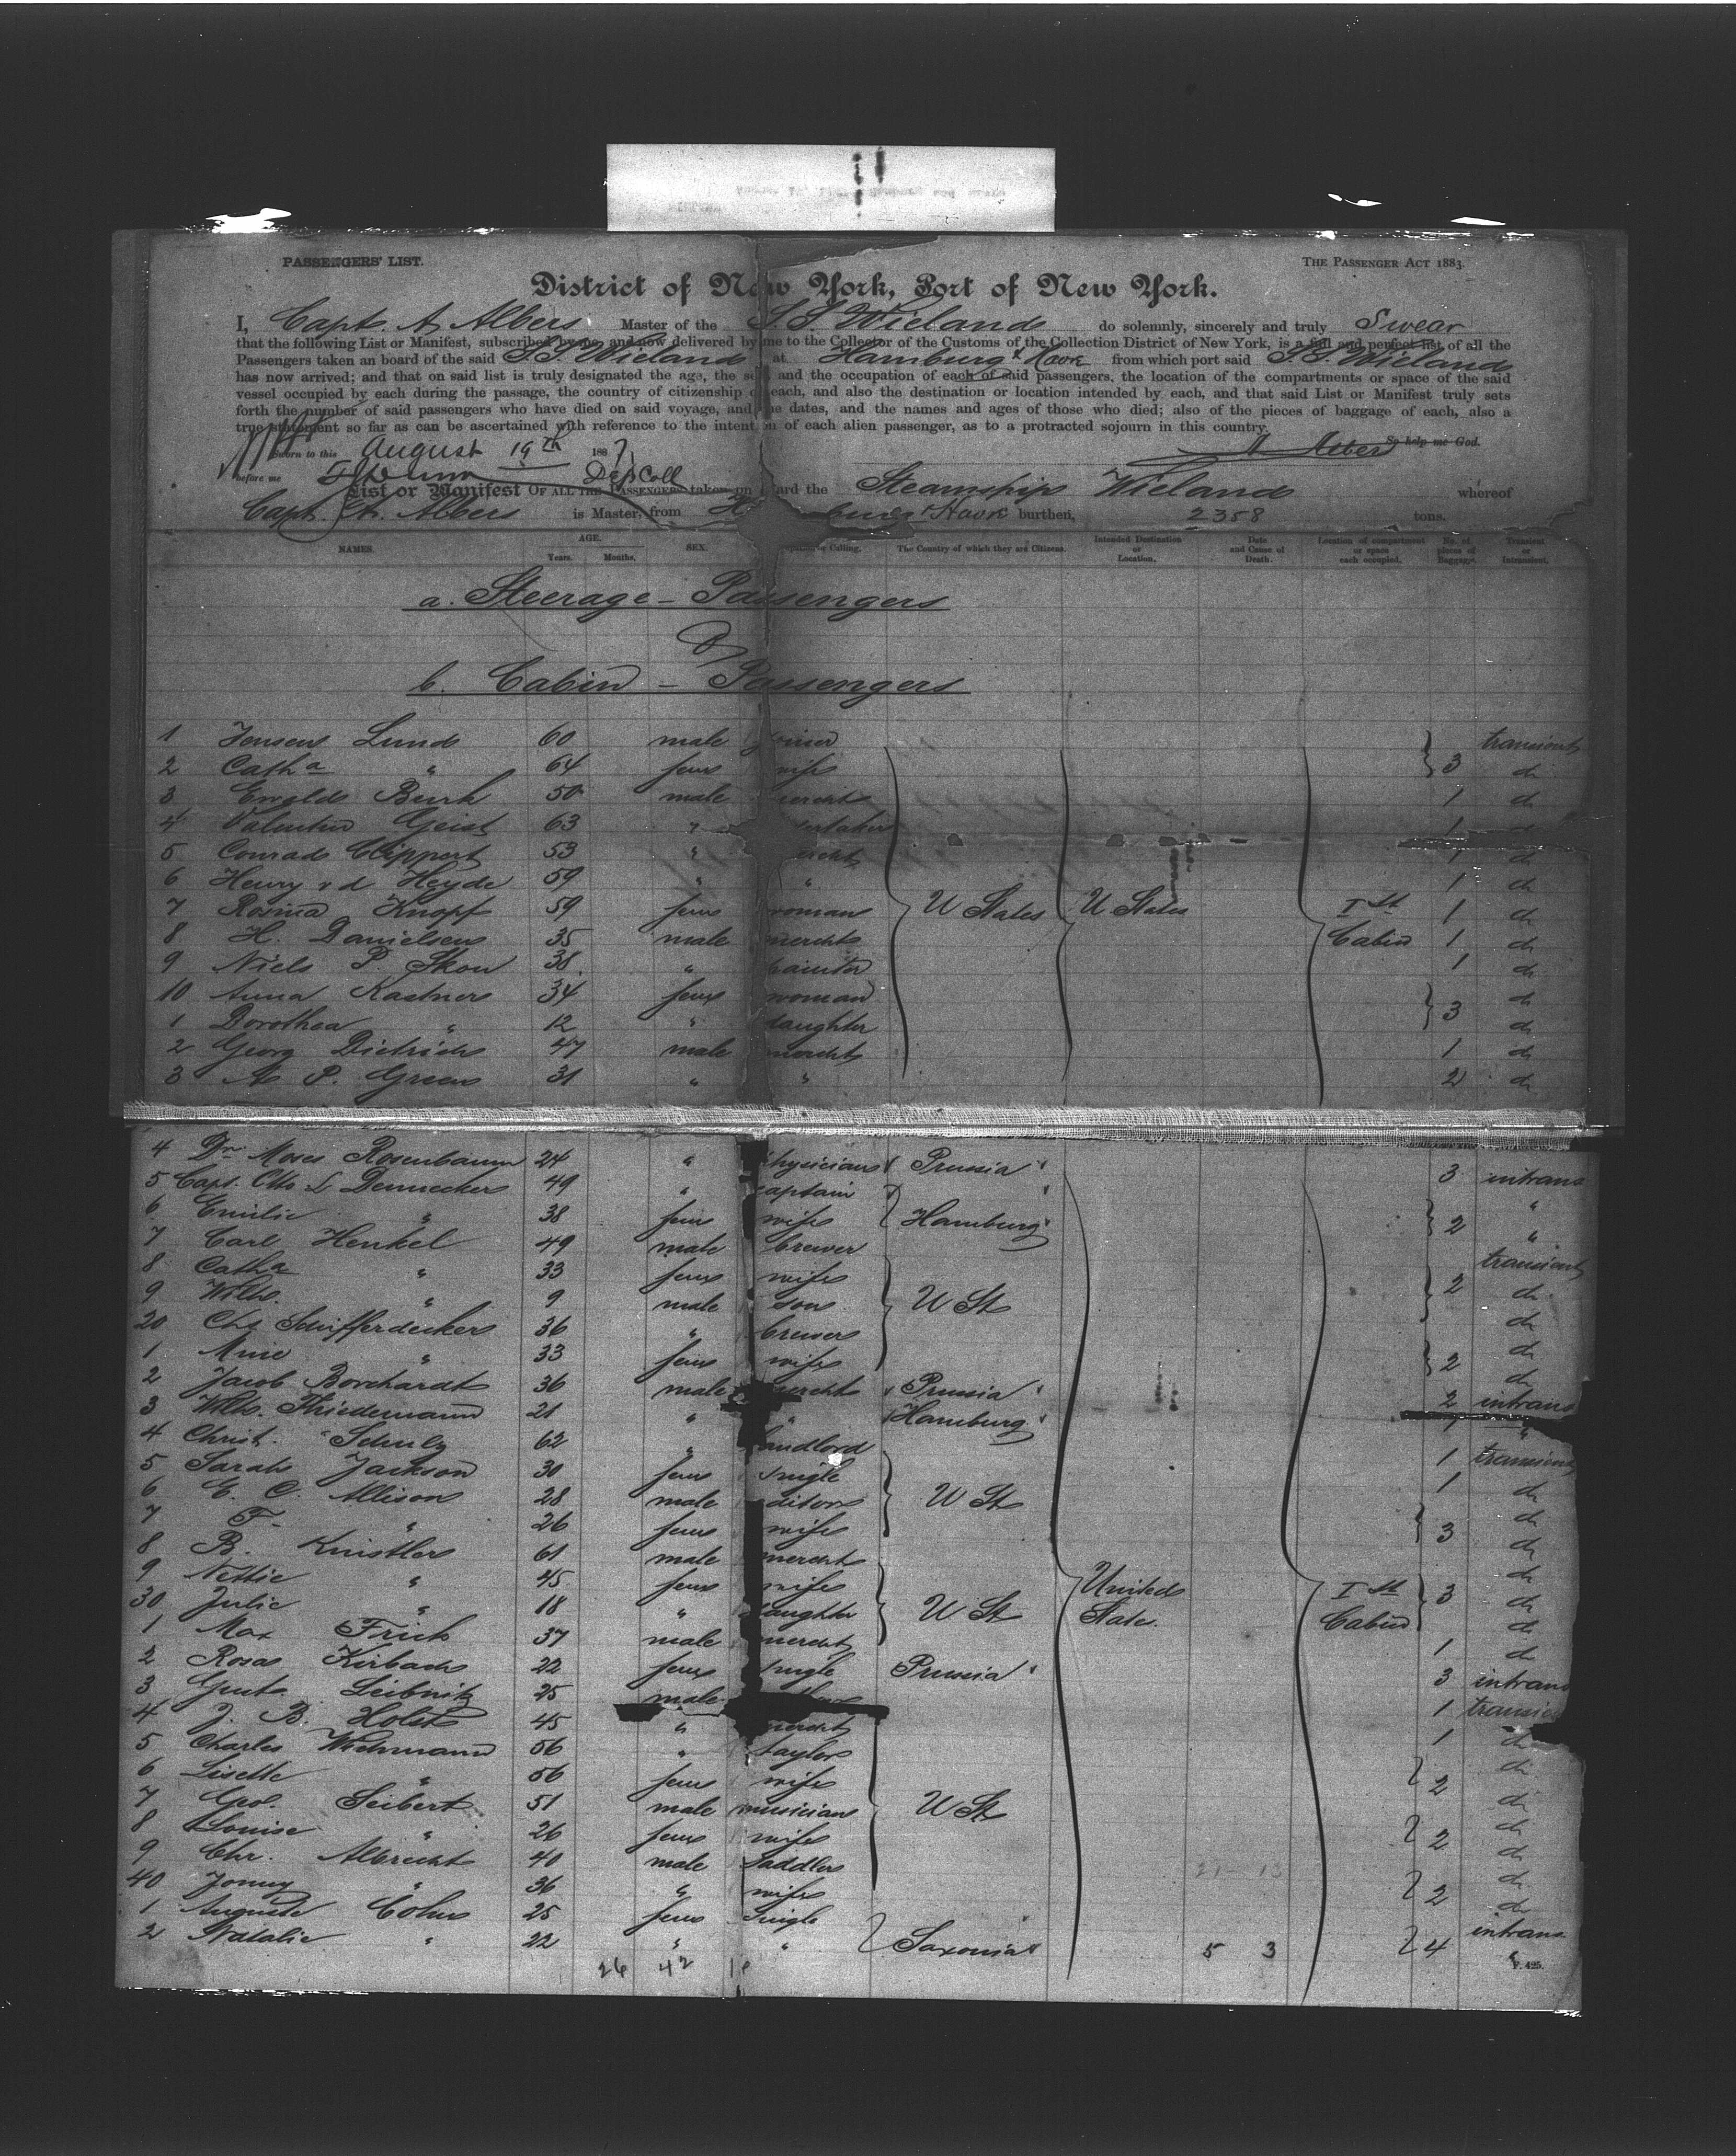 PASSENGERS' LIST. THE PASSENGER ACT 1883.
District of New York, Port of New York.
I, Capt. A Albers Master of the S.S. Wieland do solemnly, sincerely and truly Swear
that the following List or Manifest, subscribed by me, and now delivered by me to the Collector of the Customs of the Collection District of New York, is a full and perfect list of all the
Passengers taken an board of the said S.S. Wieland at Hamburg & Havre from which port said S.S. Wieland
has now arrived; and that on said list is truly designated the age, the sex and the occupation of each of said passengers, the location of the compartments or space of the said
vessel occupied by each during the passage, the country of citizenship of each, and also the destination or location intended by each, and that said List or Manifest truly sets
forth the number of said passengers who have died on said voyage, and the dates, and the names and ages of those who died; also of the pieces of baggage of each, also a
true statement so far as can be ascertained with reference to the intention of each alien passenger, as to a protracted sojourn in this country.
So help me God.
Sworn to this August 19th 1887 A Albers
before me Dep Coll
List or Manifest OF ALL THE PASSENGERS taken on board the Steamship Wieland whereof
Capt. A. Albers is Master, from Hamburg & Havre burthen, 2358 tons.
NAMES. AGE. Years. Months. SEX. Calling. The Country of which they are Citizens. Intended Destination or Location. Date and Cause of Death. Location of compartment or space each occupied. No. of pieces of Baggage. Transient or Intransient.
a. Steerage - Passengers
b. Cabin - Passengers
1 Jensen Lund 60 male transient
2 Catha " 64 fem wife 3 do
3 Ewald Burk 50 male mercht 1 do
4 Valentin Geist 63 " 1 do
5 Conrad Clippert 53 " mercht 1 do
6 Henry v d Heyde 59 " " 1 do
7 Rosina Knopf 59 fem woman U States U States Ist Cabin 1 do
8 H. Danielsen 35 male mercht 1 do
9 Niels P. Skow 38 " painter 1 do
10 Anna Kastner 34 fem woman 3 do
1 Dorothea " 12 " daughter do
2 Georg Dietrich 47 male mercht 1 do
3 A. P. Green 31 " " 2 do
4 Dr Moses Rosenbaum 24 " physician Prussia 3 intrans
5 Capt. Otto L Dennecker 49 " captain "
6 Emilie " 38 fem wife Hamburg 2 "
7 Carl Henkel 49 male brewer transient
8 Catha " 33 fem wife 2 do
9 Wilh. " 9 male son U St do
20 Chs Schifferdecker 36 " brewer do
1 Mine " 33 fem wife 2 do
2 Jacob Borchardt 36 male mercht Prussia 2 intrans
3 Wilh. Thiedemann 21 " " Hamburg 1 "
4 Christ. Schulz 62 " landlord 1 transient
5 Sarah Jackson 30 fem single 1 do
6 E. C. Allison 28 male editor U St do
7 F. " 26 fem wife 3 do
8 B. Knistler 61 male mercht do
9 Nettie " 45 fem wife United State. Ist Cabin 3 do
30 Julie " 18 " daughter U St do
1 Max Frich 37 male mercht 1 do
2 Rosa Kirbach 22 fem single Prussia 3 intrans
3 Gust. Leibnitz 25 male 1 transient
4 J. B. Holst 45 " mercht 1 do
5 Charles Wichmann 56 " taylor do
6 Lisette " 56 fem wife 2 do
7 Geo. Seibert 51 male musician U St do
8 Louise " 26 fem wife 2 do
9 Chr. Albrecht 40 male Saddler do
40 Jenny " 36 " wife 2 do
1 Auguste Cohn 25 fem single intrans
2 Natalie " 22 " " Saxonia 5 3 4 "
26 42
F. 425.